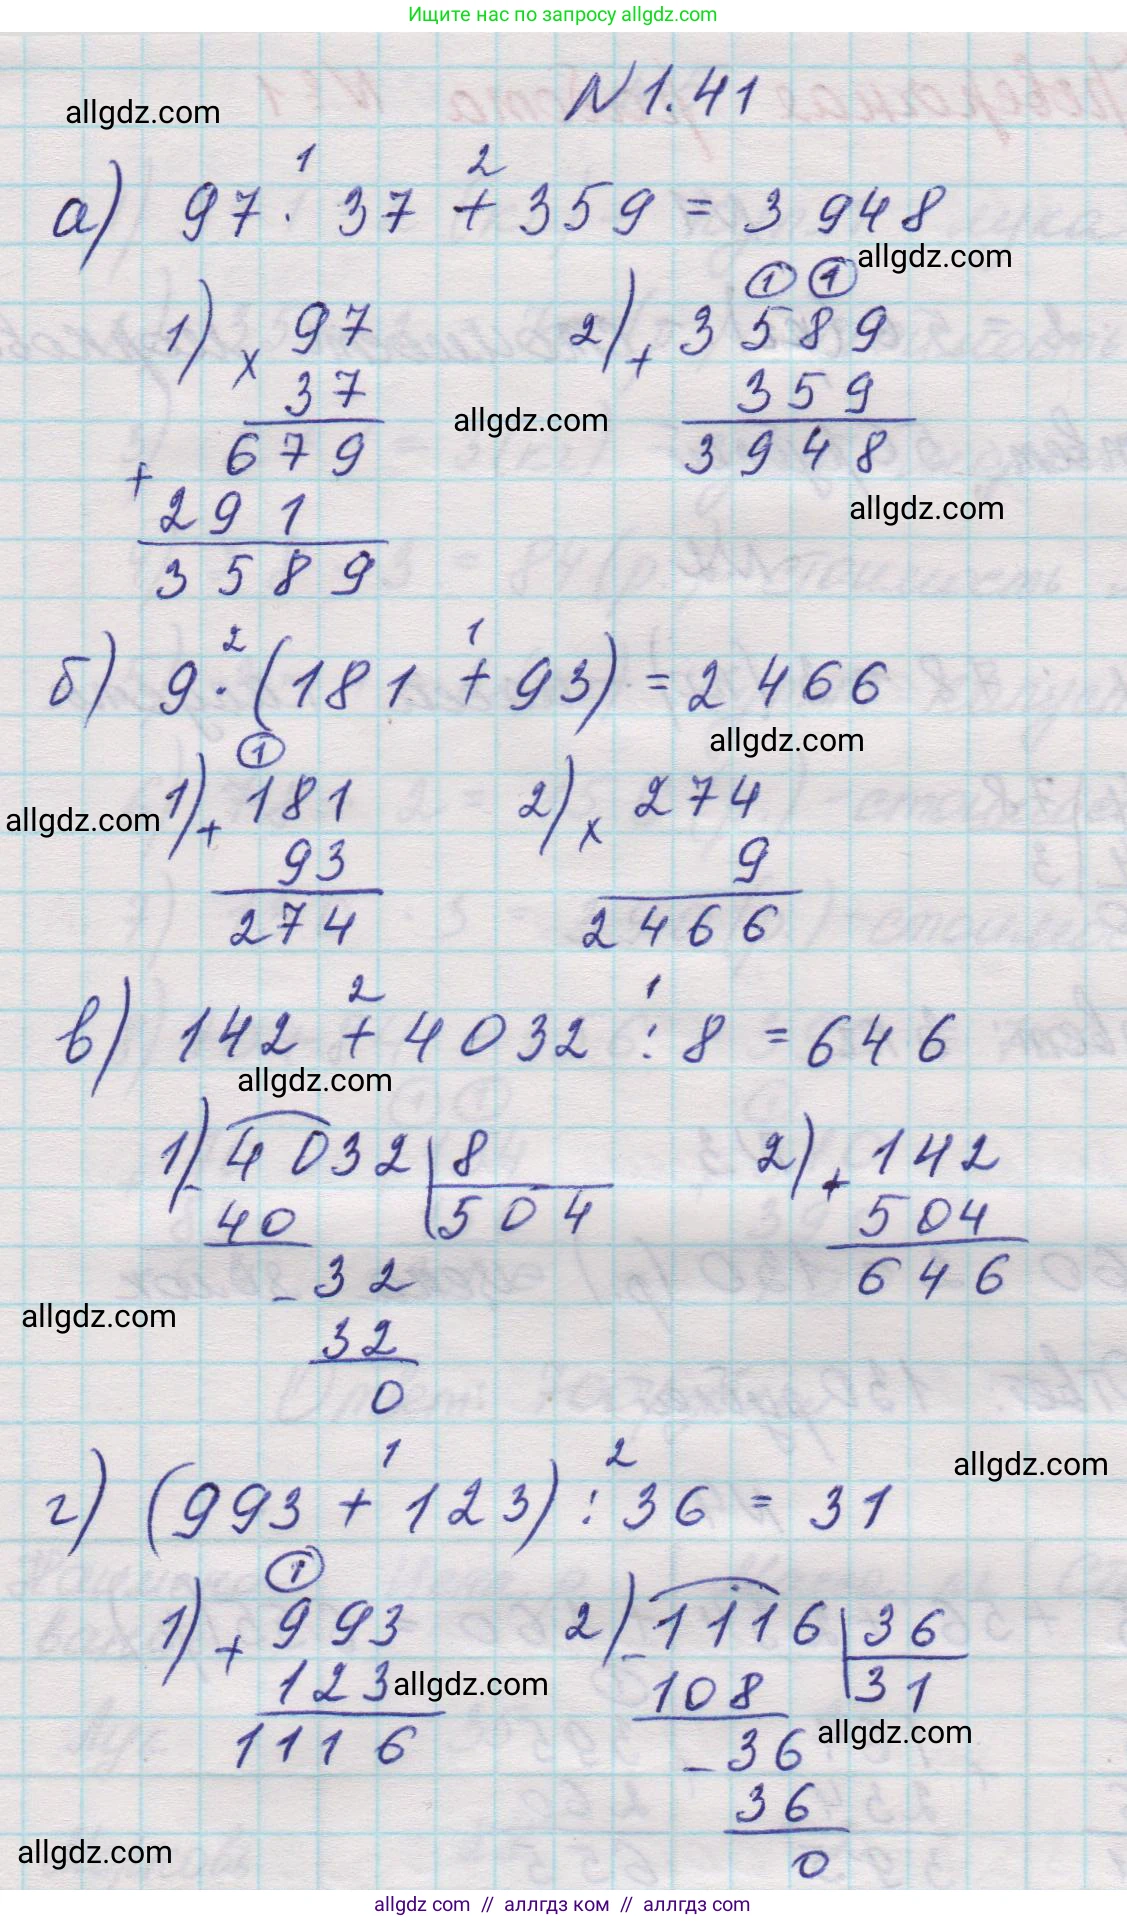 Ищите нас по запросу allgdz.com
N 1.41
allgdz.com
1 2
а) 97 · 37 + 359 = 3 948
allgdz.com
1) × 97
37
679
+
291
3589
2) + 3589
1 1
359
3948
allgdz.com
allgdz.com
2 1
б) 9 · (181 + 93) = 2 466
allgdz.com
1
1) + 181
93
274
allgdz.com
2) × 274
9
2466
2 1
в) 142 + 4032 : 8 = 646
allgdz.com
1) - 4032 | 8
40 504
- 32
32
0
2) + 142
504
646
allgdz.com
1 2
allgdz.com
г) (993 + 123) : 36 = 31
1
1) + 993
123
1116
allgdz.com
2) - 1116 | 36
108 31
- 36
36
0
allgdz.com
allgdz.com
allgdz.com // аллгдз ком // аллгдз.com